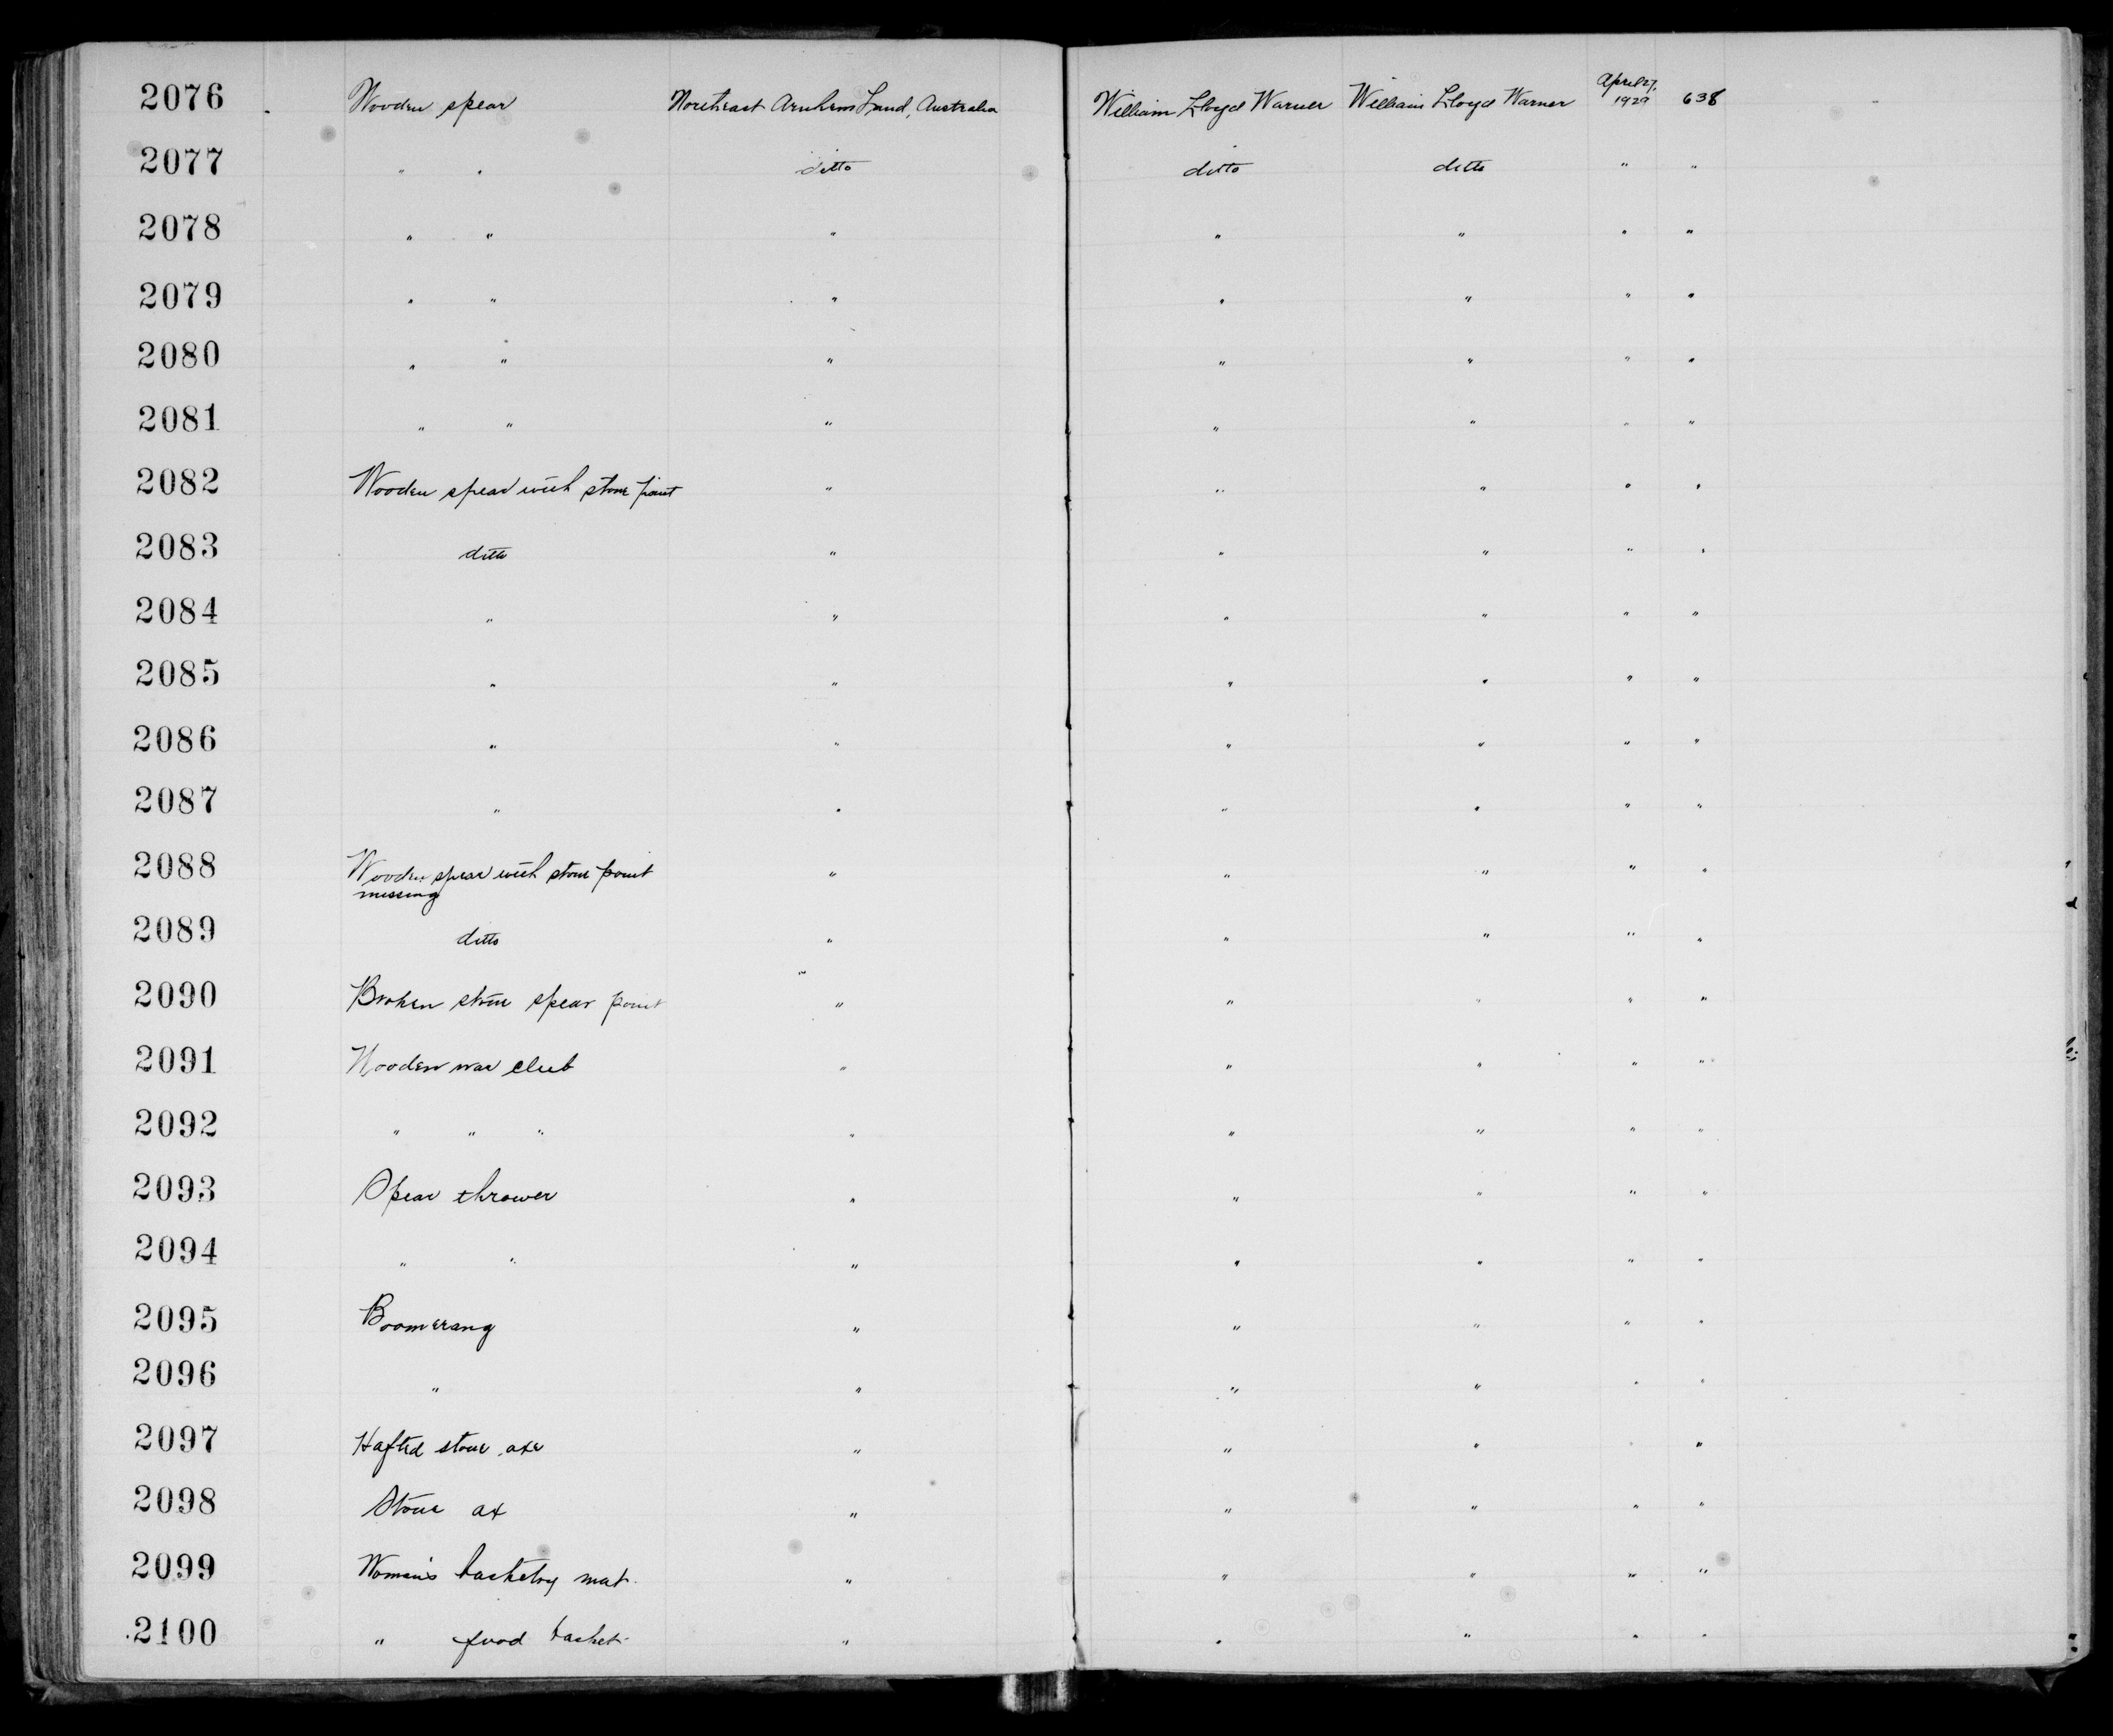 2076 Wooden spear Northeast Arnhem Land, Australia William Lloyd Warner William Lloyd Warner April 27, 1929 638
2077 " " ditto ditto ditto " "
2078 " " " " " " "
2079 " " " " " " "
2080 " " " " " " "
2081 " " " " " " "
2082 Wooden spear with stone point " " " " "
2083 ditto " " " " "
2084 " " " " " "
2085 " " " " " "
2086 " " " " " "
2087 " " " " " "
2088 Wooden spear with stone point " " " " "
missing
2089 ditto " " " " "
2090 Broken stone spear point " " " " "
2091 Wooden war club " " " " "
2092 " " " " " " " "
2093 Spear thrower " " " " "
2094 " " " " " " "
2095 Boomerang " " " " "
2096 " " " " " "
2097 Hafted stone axe " " " " "
2098 Stone ax " " " " "
2099 Woman's basketry mat. " " " " "
2100 " food basket. " " " " "